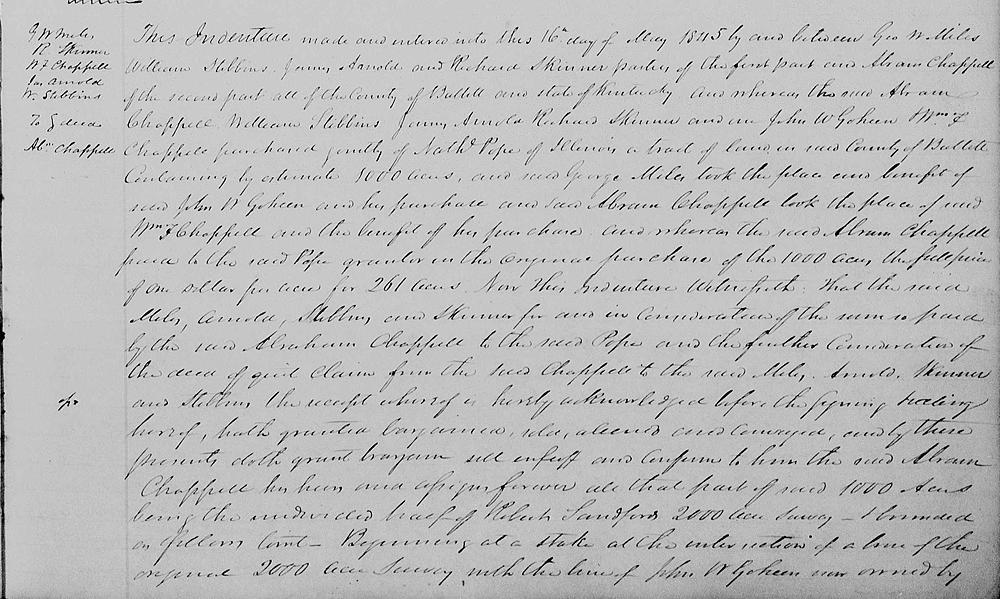 G W Miles
R. Skinner
W F Chappell
Jas Arnold
W. Stibbins
To Deed
Abm Chappell
This Indenture made and entered into this 16th day of May 1845 by and between Geo W. Miles
William Stibbins. James Arnold and Richard Skinner parties of the first part and Abram Chappell
of the second part all of the County of Bullitt and state of Kentucky and whereas the said Abram
Chappell. William Stibbins James Arnold Richard Skinner and one John W Goheen Wm F
Chappell purchased jointly of Nathl Pope of Illinois a tract of land in said County of Bullitt
Containing by estimate 1000 acres, and said George Miles took the place and benefit of
said John W Goheen and his purchase and said Abram Chappell took the place of said
Wm F Chappell and the benefit of his purchase. and whereas the said Abram Chappell
paid to the said Pope grantor in the original purchase of the 1000 acres the full price
of one dollar per acre for 261 acres. Now this Indenture Witnesseth. That the said
Miles, Arnold, Stibbins and Skinner for and in Consideration of the sum so paid
by the said Abraham Chappell to the said Pope and the further Consideration of
the deed of quit Claim from the said Chappell to the said Miles. Arnold. Skinner
and Stibbins the receipt whereof is hereby acknowledged before the signing sealing
hereof, hath granted bargained, sold, aliened and Conveyed, and by these
presents doth grant bargain sell enfeoff and Confirm to him the said Abram
Chappell his heirs and assigns forever all that part of said 1000 Acres
being the undivided half of Robert Sandfords 2000 acre Survey - & bounded
as follows towit - Beginning at a stake at the intersection of a line of the
original 2000 acre Survey with the line of John W Goheen now owned by